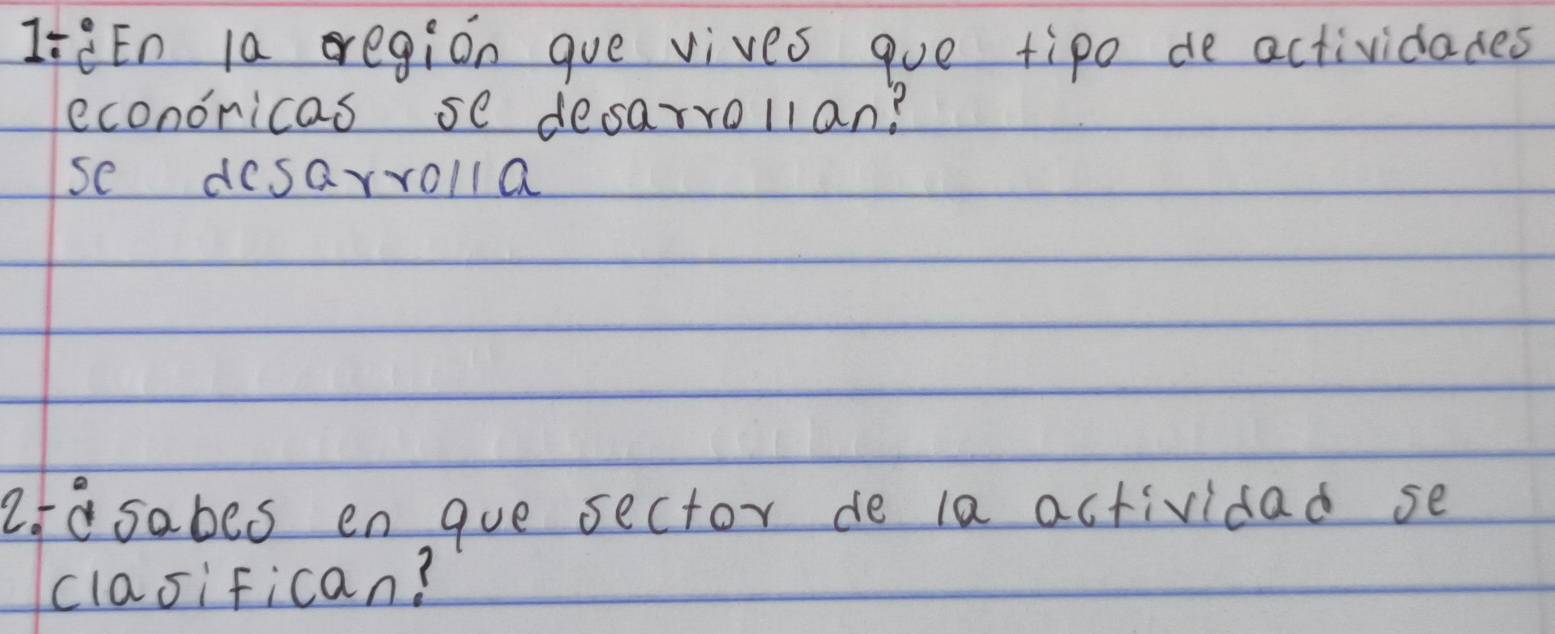 1.-¿En la región que vives que tipo de actividades
económicas se desarrollan?
se desarrolla
2.-¿sabes en que sector de la actividad se
clasifican?